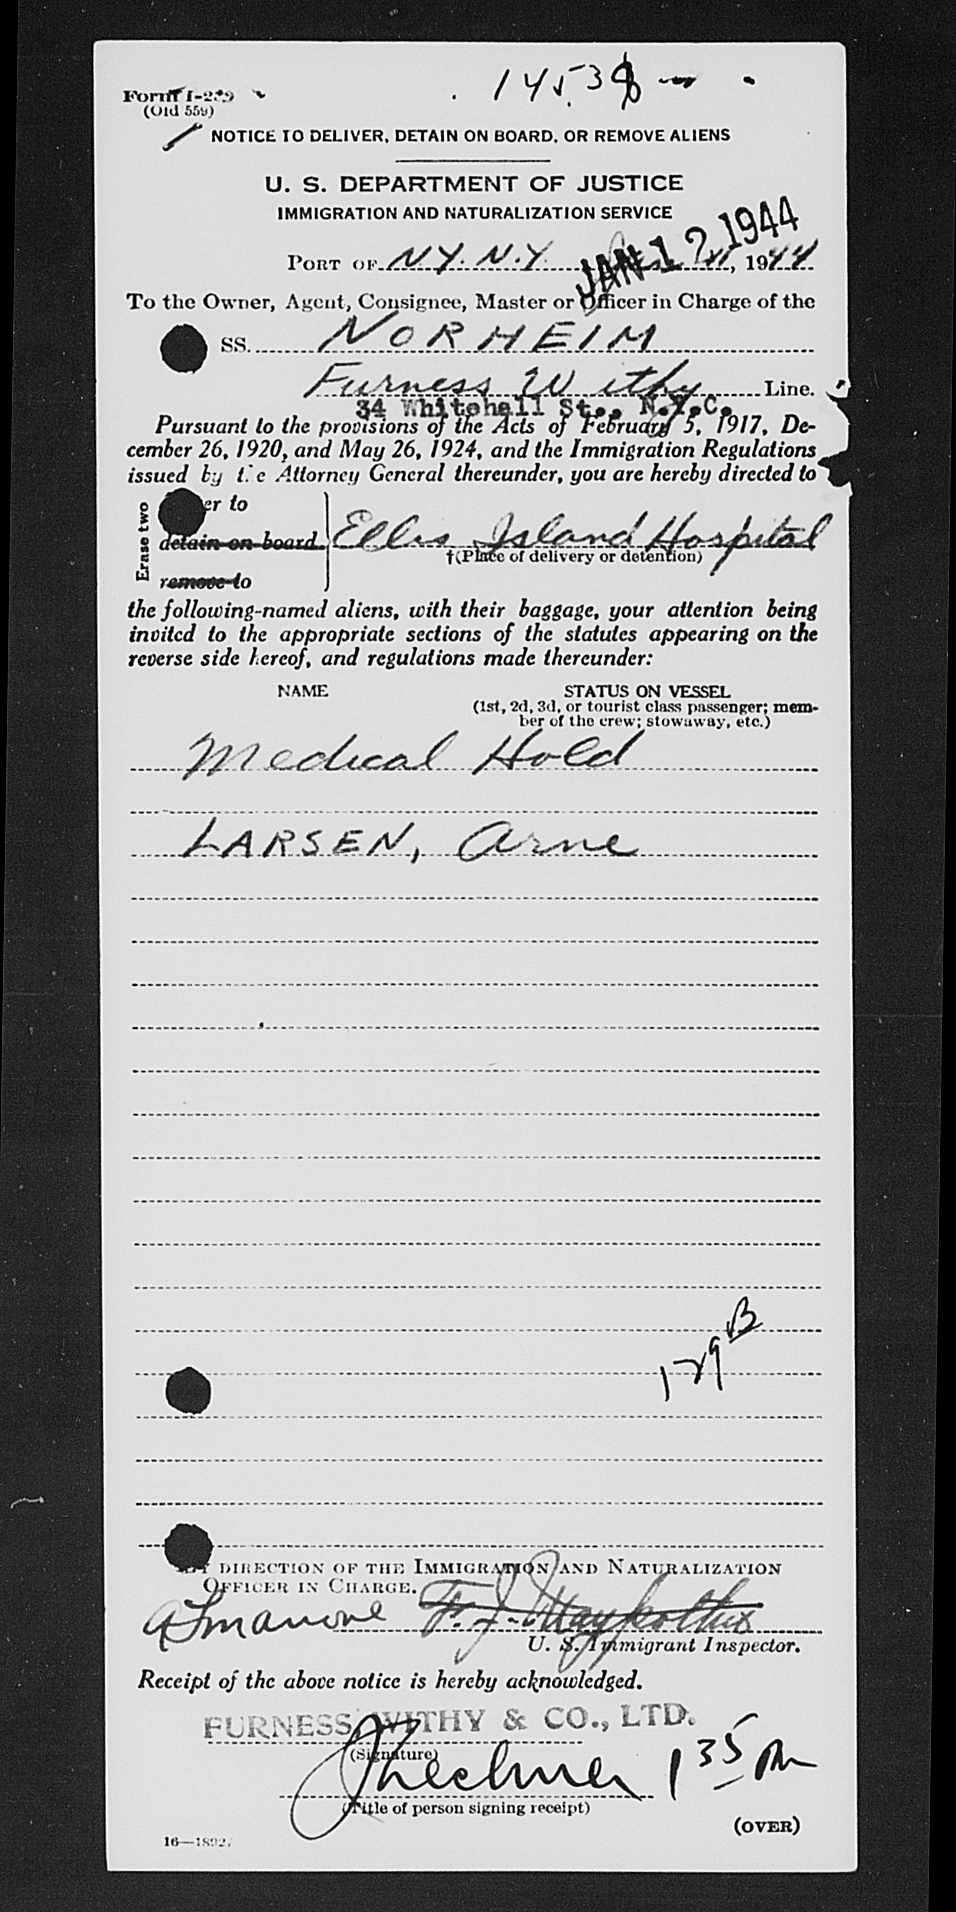 1453
Form I-259
(Old 559)
NOTICE TO DELIVER, DETAIN ON BOARD, OR REMOVE ALIENS
U. S. DEPARTMENT OF JUSTICE
IMMIGRATION AND NATURALIZATION SERVICE
JAN 12 1944
PORT OF N.Y. N.Y. , 1944
To the Owner, Agent, Consignee, Master or Officer in Charge of the
SS. NORHEIM
Furness Withy Line.
34 Whitehall St., N.Y.C.
Pursuant to the provisions of the Acts of February 5, 1917, De-
cember 26, 1920, and May 26, 1924, and the Immigration Regulations
issued by the Attorney General thereunder, you are hereby directed to
Erase two
er to
detain on board
remove to
Ellis Island Hospital
†(Place of delivery or detention)
the following-named aliens, with their baggage, your attention being
invited to the appropriate sections of the statutes appearing on the
reverse side hereof, and regulations made thereunder:
NAME STATUS ON VESSEL
(1st, 2d, 3d, or tourist class passenger; mem-
ber of the crew; stowaway, etc.)
Medical Hold
LARSEN, Arne
129 B
BY DIRECTION OF THE IMMIGRATION AND NATURALIZATION
OFFICER IN CHARGE.
U. S. Immigrant Inspector.
Receipt of the above notice is hereby acknowledged.
FURNESS, WITHY & CO., LTD.
(Signature)
1 35 PM
(Title of person signing receipt)
(OVER)
16—18927